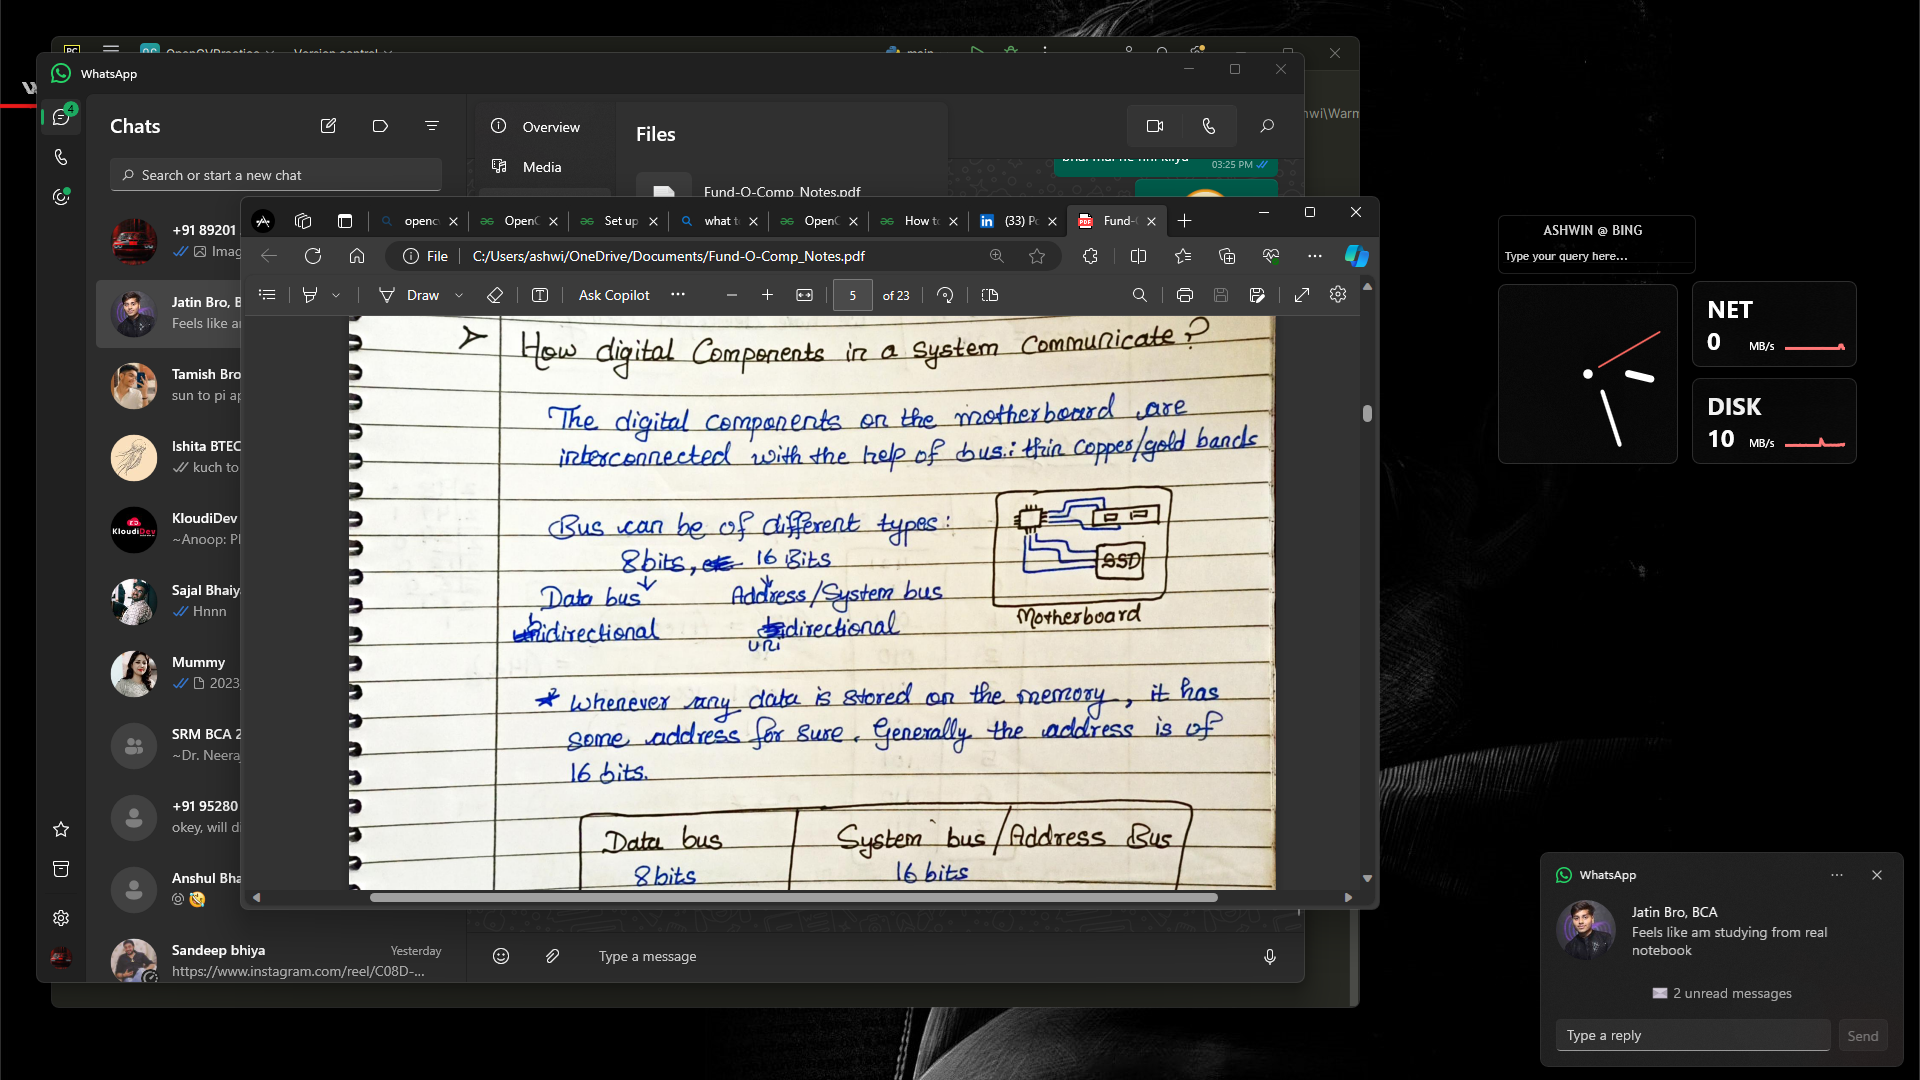 OpenCVPractice
Version control
main
WhatsApp
4
Chats
Search or start a new chat
+91 89201
Imag
Jatin Bro, B
Feels like a
Tamish Bro
sun to pi a
Ishita BTEC
kuch to
KloudiDev
~Anoop: Pl
Sajal Bhaiy
Hnnn
Mummy
2023
SRM BCA 2
~Dr. Neera
+91 95280
okey, will d
Anshul Bha
Sandeep bhiya
Yesterday
https://www.instagram.com/reel/C08D-...
Overview
Media
Files
Fund-O-Comp_Notes.pdf
03:25 PM
wi\Warm
openc
OpenC
Set up
what t
OpenC
How to
(33) Po
Fund-
File
C:/Users/ashwi/OneDrive/Documents/Fund-O-Comp_Notes.pdf
Draw
Ask Copilot
5
of 23
How digital Components in a system Communicate?
The digital components on the motherboard are
interconnected with the help of bus: thin copper/gold bands
Bus can be of different types:
8bits, 16 Bits
Data bus Address/System bus
bidirectional unidirectional
SSD
Motherboard
* Whenever any data is stored on the memory, it has
some address for sure. Generally the address is of
16 bits.
Data bus System bus/Address Bus
8bits 16 bits
Type a message
ASHWIN @ BING
Type your query here...
NET
0 MB/s
DISK
10 MB/s
WhatsApp
Jatin Bro, BCA
Feels like am studying from real
notebook
2 unread messages
Type a reply
Send